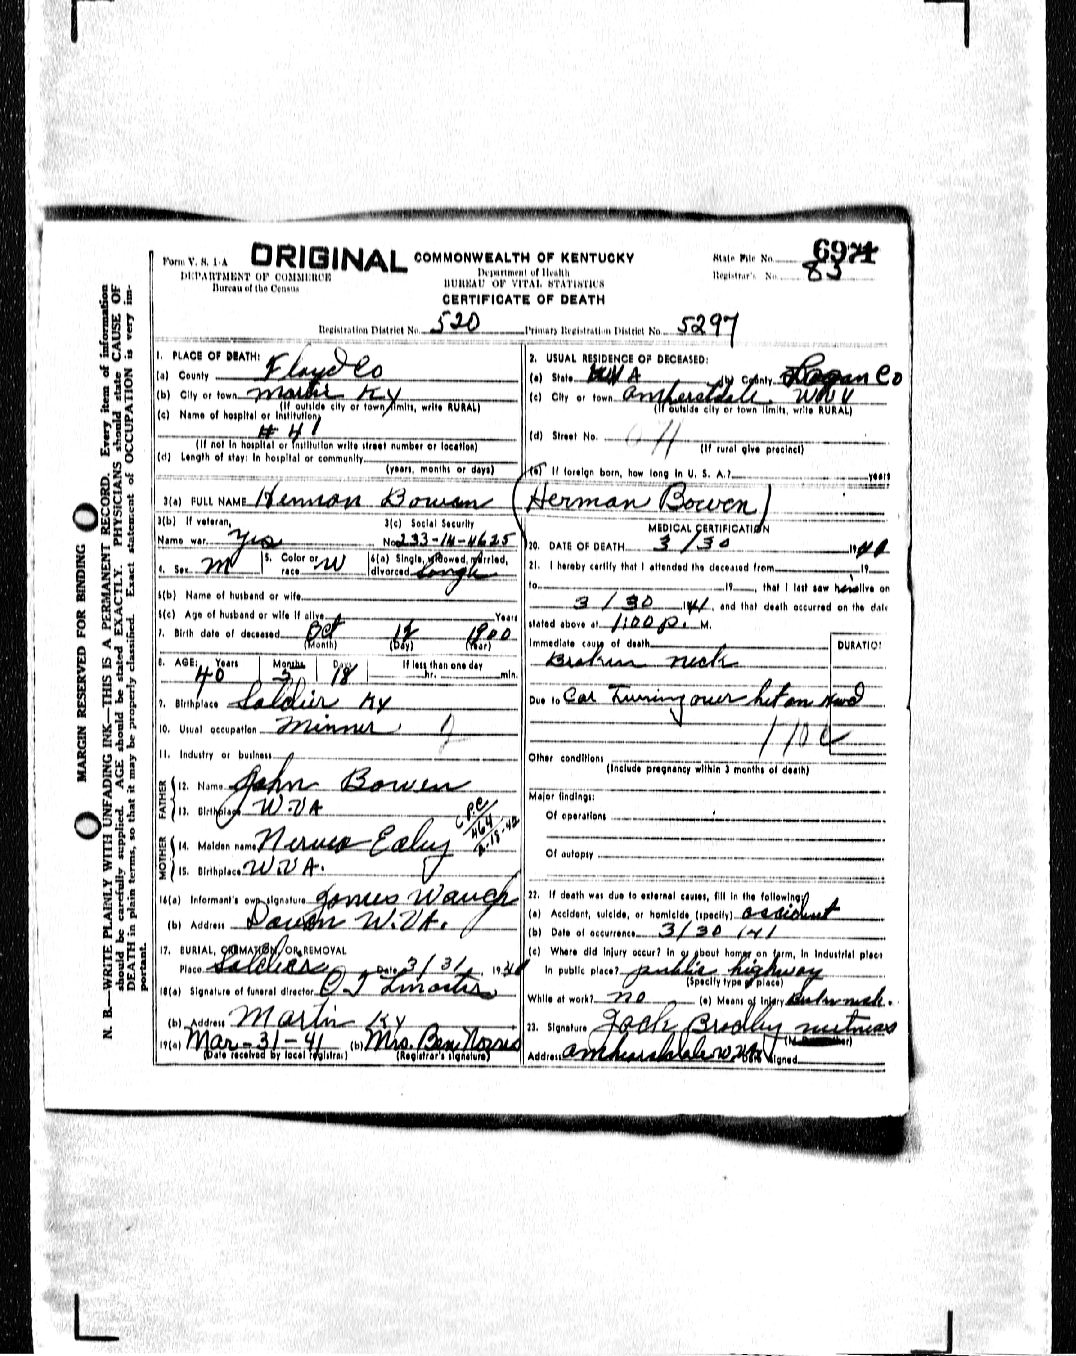 N. B.—WRITE PLAINLY WITH UNFADING INK—THIS IS A PERMANENT RECORD. Every item of information
should be carefully supplied. AGE should be stated EXACTLY. PHYSICIANS should state CAUSE OF
DEATH in plain terms, so that it may be properly classified. Exact statement of OCCUPATION is very im-
portant.
MARGIN RESERVED FOR BINDING
Form V. S. 1-A ORIGINAL COMMONWEALTH OF KENTUCKY State File No. 6971
DEPARTMENT OF COMMERCE Department of Health Registrar's No. 83
Bureau of the Census BUREAU OF VITAL STATISTICS
CERTIFICATE OF DEATH
Registration District No. 520 Primary Registration District No. 5297
1. PLACE OF DEATH:
(a) County Floyd Co
(b) City or town Martin KY
(If outside city or town limits, write RURAL)
(c) Name of hospital or institution
# 41
(If not in hospital or institution write street number or location)
(d) Length of stay: In hospital or community
(years, months or days)
2. USUAL RESIDENCE OF DECEASED:
(a) State W V A (b) County Logan Co
(c) City or town Amherstdale W V
(If outside city or town limits, write RURAL)
(d) Street No.
(If rural give precinct)
(e) If foreign born, how long in U. S. A.? years
3(a) FULL NAME Hemon Bowen (Herman Bowen)
3(b) If veteran, 3(c) Social Security
Name war Yes No. 233-14-4625
4. Sex M 5. Color or race W 6(a) Single, widowed, married, divorced
6(b) Name of husband or wife
6(c) Age of husband or wife if alive Years
7. Birth date of deceased Oct 12 1900
(Month) (Day) (Year)
8. AGE: Years Months Days If less than one day
40 18 hr. min.
9. Birthplace Soldier KY
10. Usual occupation Minner
11. Industry or business
FATHER
12. Name John Bowen
13. Birthplace W.VA
MOTHER
14. Maiden name Ealey
15. Birthplace W.VA.
16(a) Informant's own signature Waugh
(b) Address W.VA.
17. BURIAL, CREMATION, OR REMOVAL
Place Soldiers Date 3/31, 19
18(a) Signature of funeral director
(b) Address Martin KY
19(a) Mar-31-41 (b) Mrs. Ben Norris
(Date received by local registrar) (Registrar's signature)
MEDICAL CERTIFICATION
20. DATE OF DEATH 3/30 19
21. I hereby certify that I attended the deceased from 19
to 19, that I last saw him alive on
3/30 1941, and that death occurred on the date
stated above at 1:00 p. M.
Immediate cause of death DURATION
Broken neck
Due to Car turning over
Other conditions
(Include pregnancy within 3 months of death)
Major findings:
Of operations
Of autopsy
22. If death was due to external causes, fill in the following:
(a) Accident, suicide, or homicide (specify) accident
(b) Date of occurrence 3/30/41
(c) Where did injury occur? In or about home, on farm, in industrial place
in public place? public highway
(Specify type of place)
While at work? no (e) Means of injury Broken neck.
23. Signature Jack Bradley
Address W.VA signed